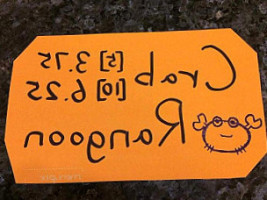 Crab
[5] 3.75
[10] 6.25
Rangoon